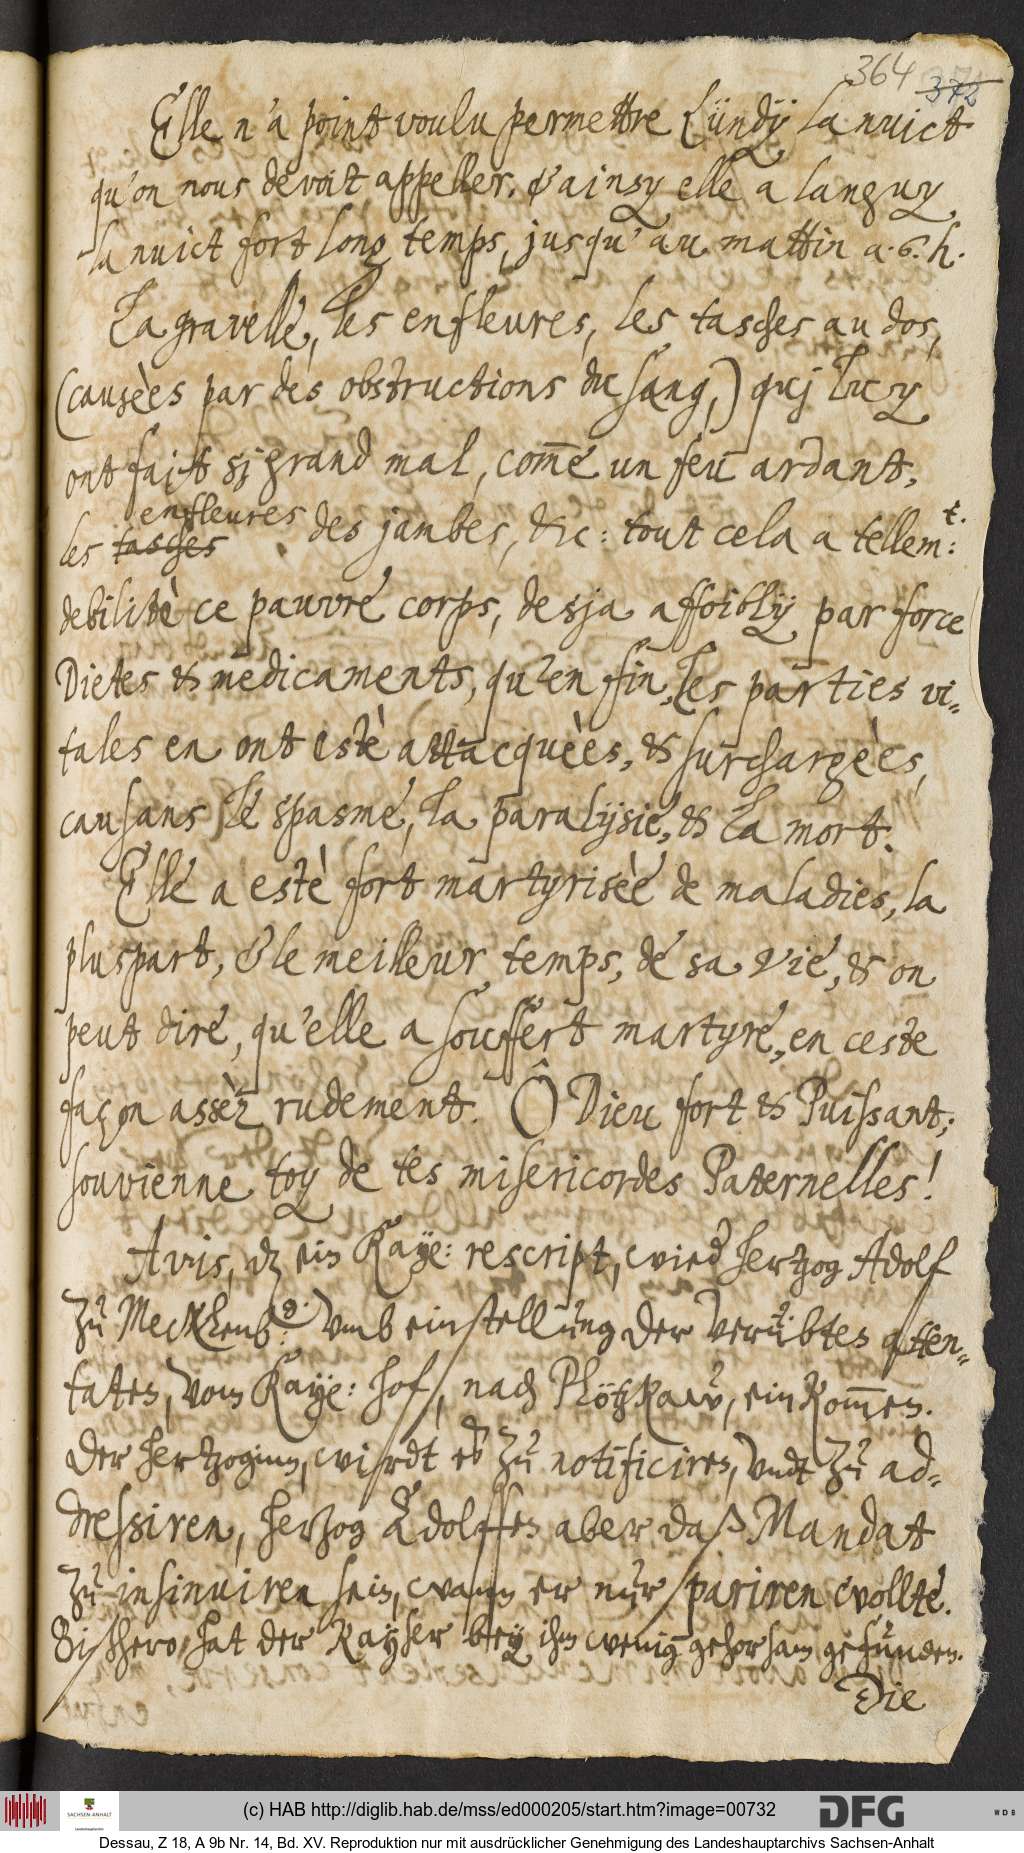 364 372
Elle n'a point voulu permettre Lündÿ la nuict
qu'on nous devoit appeller. & ainsy elle a languy
la nuict fort long temps, jusqu' au mattin a. 6. h.
La gravelle, les enfleures, les tasches au dos,
(causèes par des obstructions du sang,) quj luy
ont faitt sj grand mal, com̅e un feu ardant,
enfleures
les tasches des jambes, &c: tout cela a tellem:t.
debilitè ce pauvre corps, desja affoiblÿ par force
Dietes & medicaments, qu'en fin, les parties vi-
tales en ont estè attacquèes, & surchargèes,
causans le spasme, la paralÿsie, & la mort.
Elle a estè fort martyrisèe de maladies, la
pluspart, & le meilleur temps, de sa vie, & on
peut dire, qu'elle a souffert martyre, en ceste
façon assèz rudement. Ô Dieu fort & Puissant;
souvienne toy de tes misericordes Paternelles!
Avis, dz ein Kaÿe: rescript, wied hertzog Adolf
zu Mecklenb:g. vmb einstellung der verübten atten-
taten, vom Kaÿe: hof, nach Plötzkaw, ein kom̅en.
Der hertzoginn, wirdt es zu notificiren, vndt zu ad-
dressiren, herzog Adolffen aber daß Mandat
zu insinuiren sein, wann er nur pariren wollte.
Bißhero hat der Kayser bey ihm wenig gehorsam gefunden.
Die
(c) HAB http://diglib.hab.de/mss/ed000205/start.htm?image=00732
SACHSEN-ANHALT
DFG
WDB
Dessau, Z 18, A 9b Nr. 14, Bd. XV. Reproduktion nur mit ausdrücklicher Genehmigung des Landeshauptarchivs Sachsen-Anhalt